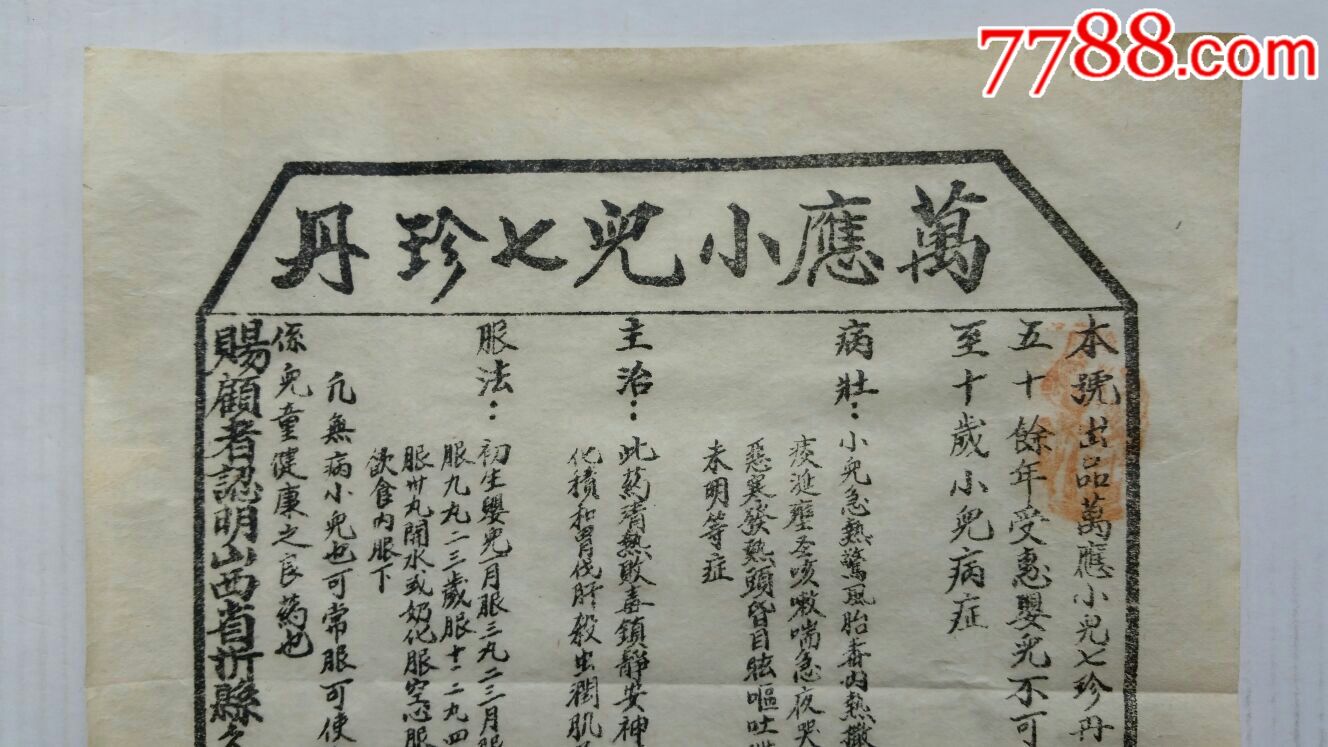 7788.com
萬應小兒七珍丹
本號出品萬應小兒七珍丹
五十餘年受惠嬰兒不可
至十歲小兒病症
病壯：小兒急熱驚風胎毒內熱撒
痰涎壅圣咳嗽喘急夜哭
惡寒發熱頭昏目眩嘔吐
未明等症
主治：此药清熱敗毒鎮靜安神
化積和胃伐肝殺虫潤肌
服法：初生嬰兒一月服三丸二三月服
服九丸一二三歲服十一二丸四
服卅丸開水或奶化服空心服
飲食內服下
凣無病小兒也可常服可使
係兒童健康之良葯也
賜顧者認明山西省忻縣